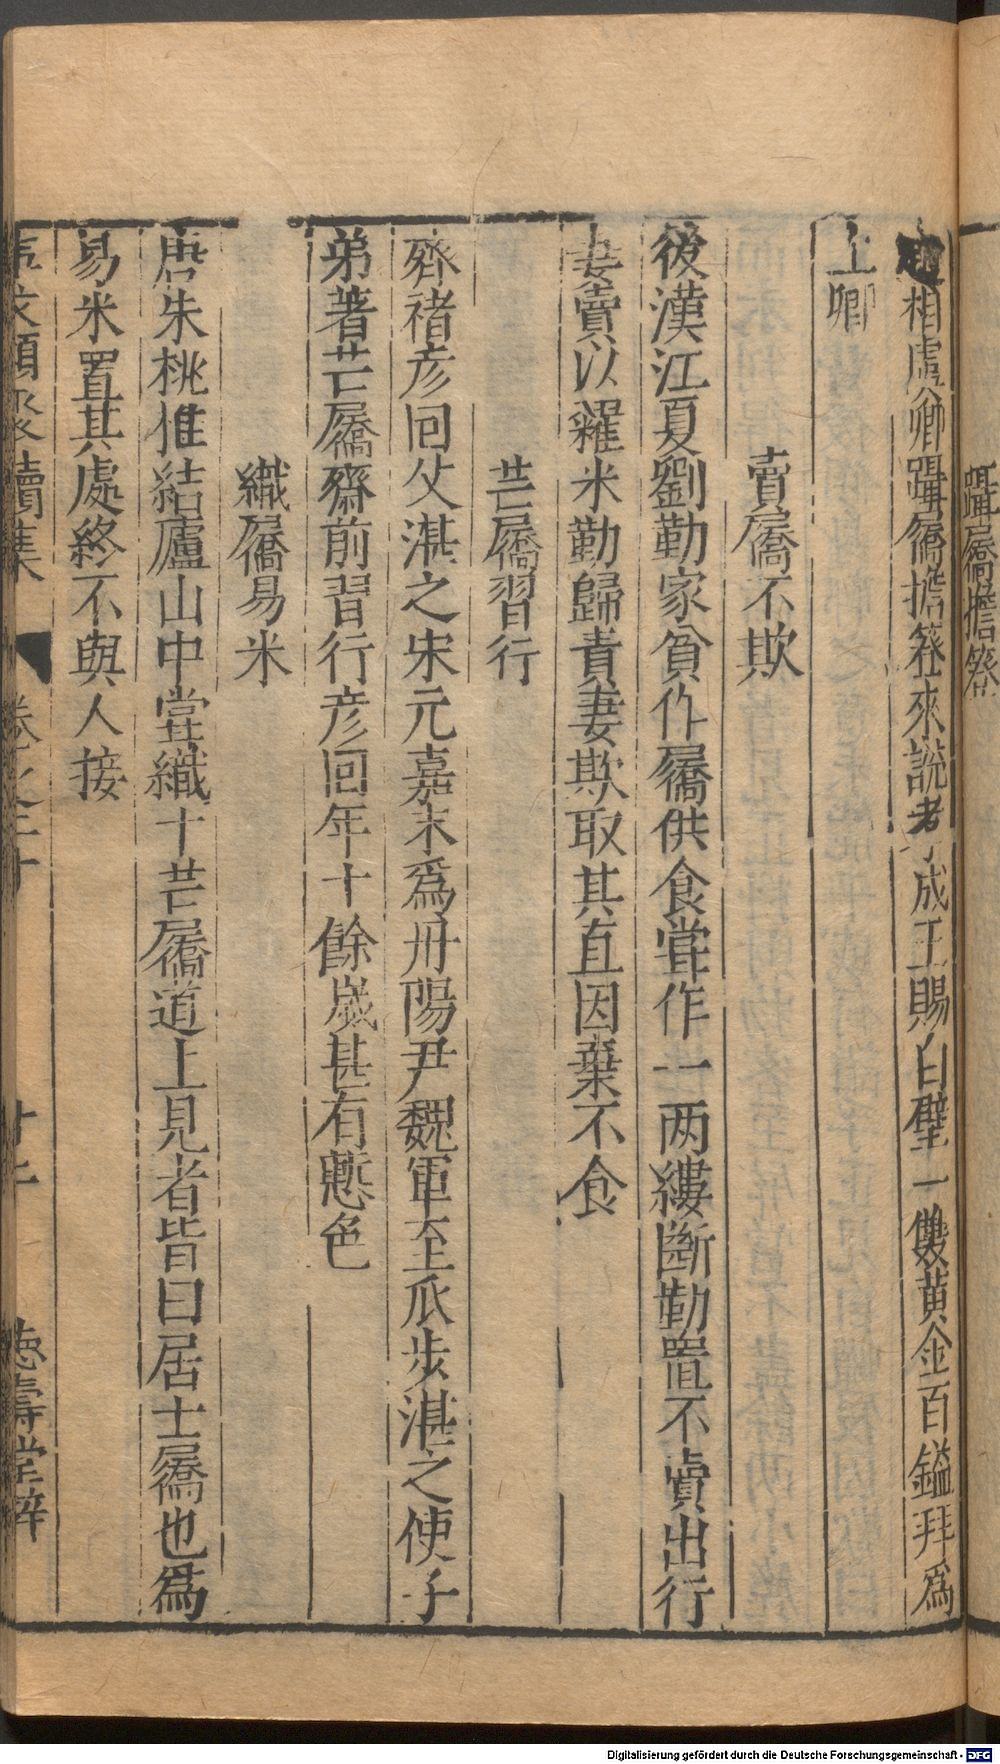 躡屩擔簦
趙相虞卿躡屩擔簦來說考成王賜白璧一雙黃金百鎰拜爲
上卿
賣屩不欺
後漢江夏劉勤家貧作屩供食甞作一两縷斷勤置不賣出行
妻賣以糴米勤歸責妻欺取其直因棄不食
芒屩習行
齊褚彦回父湛之宋元嘉末爲丹陽尹魏軍至瓜步湛之使子
弟著芒屩齋前習行彦回年十餘歲甚有慙色
織屩易米
唐朱桃惟結廬山中甞織十芒屩道上見者皆曰居士屩也爲
易米置其處終不與人接
事文類聚續集
卷之二十
廿二
德壽堂梓
Digitalisierung gefördert durch die Deutsche Forschungsgemeinschaft - DFG